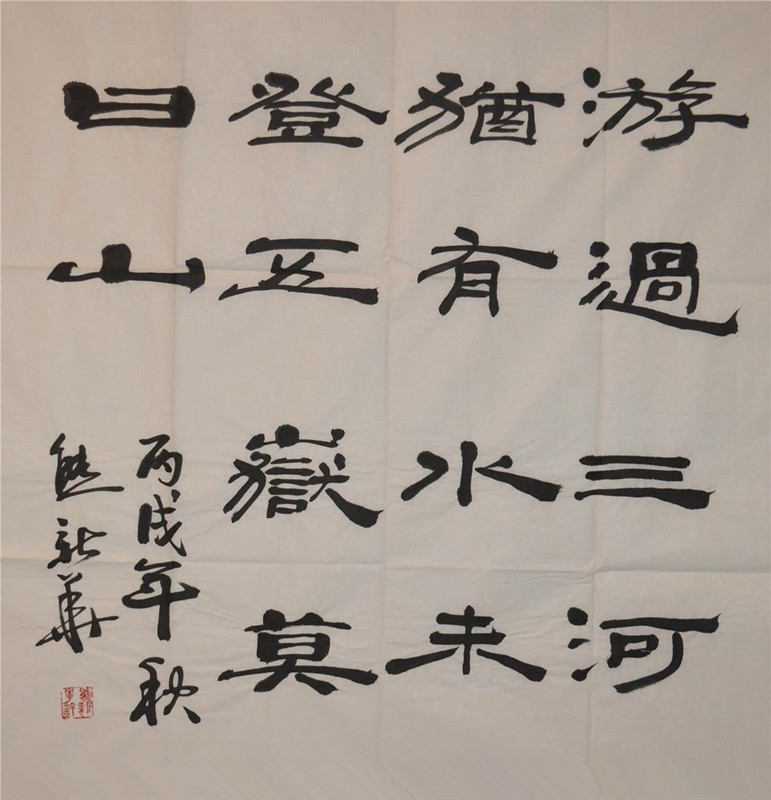 游過三河
猶有水未
登五嶽莫
曰山
丙戌年秋
熊新華